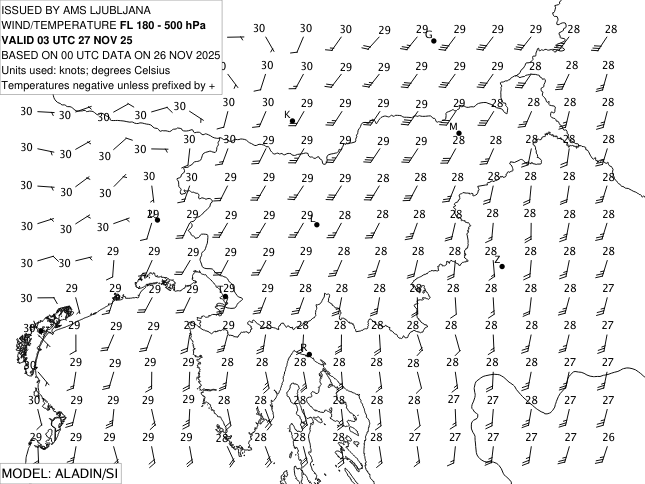 ISSUED BY AMS LJUBLJANA
WIND/TEMPERATURE FL 180 - 500 hPa
VALID 03 UTC 27 NOV 25
BASED ON 00 UTC DATA ON 26 NOV 2025
Units used: knots; degrees Celsius
Temperatures negative unless prefixed by +
30 30 30 29 29 29 29 28 28
G
30 30 30 29 29 29 29 28 28 28
30 30 30 30 30 30 30 29 29 29 29 28 28 28 28
K
M
30 30 30 30 30 30 29 29 29 29 28 28 28 28 28
30 30 30 30 30 29 29 29 29 28 28 28 28 28
30 30 30 29 29 29 29 28 28 28 28 28 28 28
L
30 30 29 29 29 29 29 28 28 28 28 28 28 28
Z
30 29 29 29 29 29 29 28 28 28 28 28 28 27
29 29 29 29 29 28 28 28 28 28 28 28 28 27
R
30 29 29 29 29 28 28 28 28 28 28 28 28 27 27
30 29 29 29 29 28 28 28 28 28 28 27 27 27 27
29 29 29 29 29 28 28 28 28 28 27 27 27 27 27 26
MODEL: ALADIN/SI